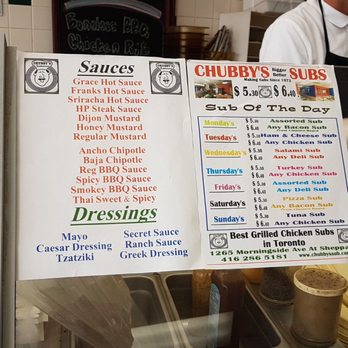 Sauces
Grace Hot Sauce
Franks Hot Sauce
Sriracha Hot Sauce
HP Steak Sauce
Dijon Mustard
Honey Mustard
Regular Mustard
Ancho Chipotle
Baja Chipotle
Reg BBQ Sauce
Spicy BBQ Sauce
Smokey BBQ Sauce
Thai Sweet & Spicy
Dressings
Mayo Secret Sauce
Caesar Dressing Ranch Sauce
Tzatziki Greek Dressing
CHUBBY'S Bigger Better SUBS
Making Subs Since 1973
$ 5.30 $ 6.40
Sub Of The Day
Monday's Assorted Sub
Any Bacon Sub
Tuesday's Ham & Cheese Sub
Any Chicken Sub
Wednesday's Salami Sub
Any Deli Sub
Thursday's Turkey Sub
Any Chicken Sub
Friday's Assorted Sub
Any Deli Sub
Saturday's Pizza Sub
Any Bacon Sub
Sunday's Tuna Sub
Any Chicken Sub
Best Grilled Chicken Subs
in Toronto
1265 Morningside Ave At Sheppa
416 286 5181